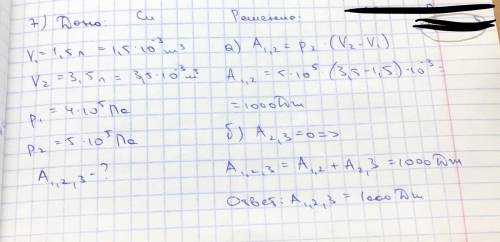 7) Дано: Си Решение:
V₁=1,5л=1,5·10⁻³м³
V₂=3,5л=3,5·10⁻³м³
p₁=4·10⁵Па
p₂=5·10⁵Па
A₁,₂,₃-?
а) A₁,₂=p₂·(V₂-V₁)
A₁,₂=5·10⁵(3,5-1,5)·10⁻³=
=1000Дж
б) A₂,₃=0=>
A₁,₂,₃=A₁,₂+A₂,₃=1000Дж
Ответ: A₁,₂,₃=1000Дж